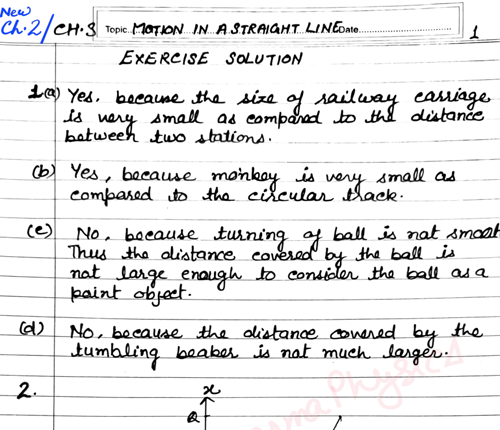 New
Ch.2/ CH.3 Topic. MOTION IN A STRAIGHT LINE Date 1
EXERCISE SOLUTION
1(a) Yes. because the size of railway carriage
is very small as compared to the distance
between two stations.
(b) Yes, because monkey is very small as
compared to the circular track.
(c) No, because turning of ball is not smooth
Thus the distance covered by the ball is
not large enough to consider the ball as a
point object.
(d) No, because the distance covered by the
tumbling beaker is not much larger.
2. x
Q